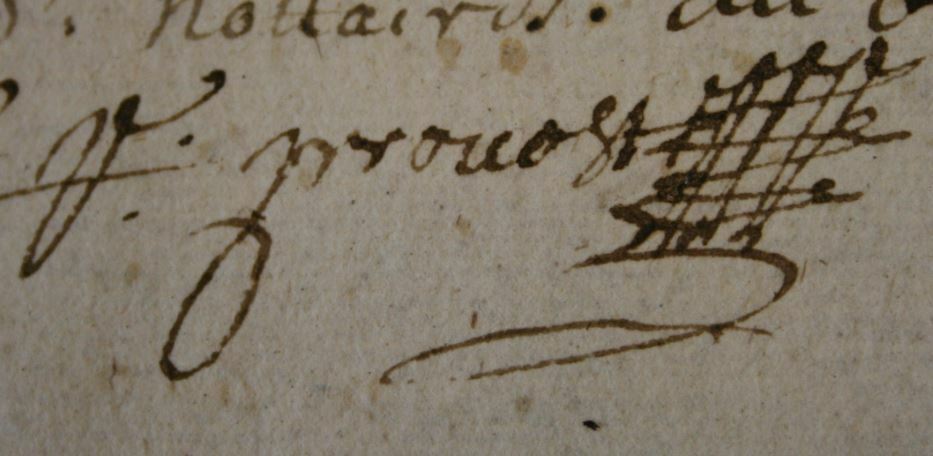 Nottaires. du
ff. prouost